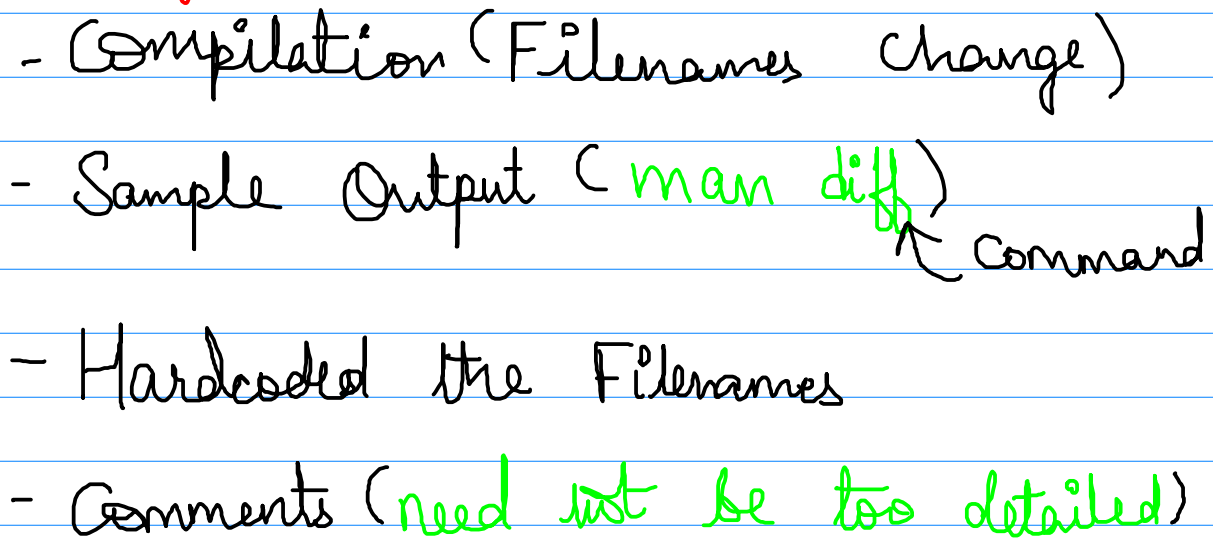 - Compilation (Filenames change)
- Sample Output (man diff)
command
- Hardcoded the Filenames
- Comments (need not be too detailed)